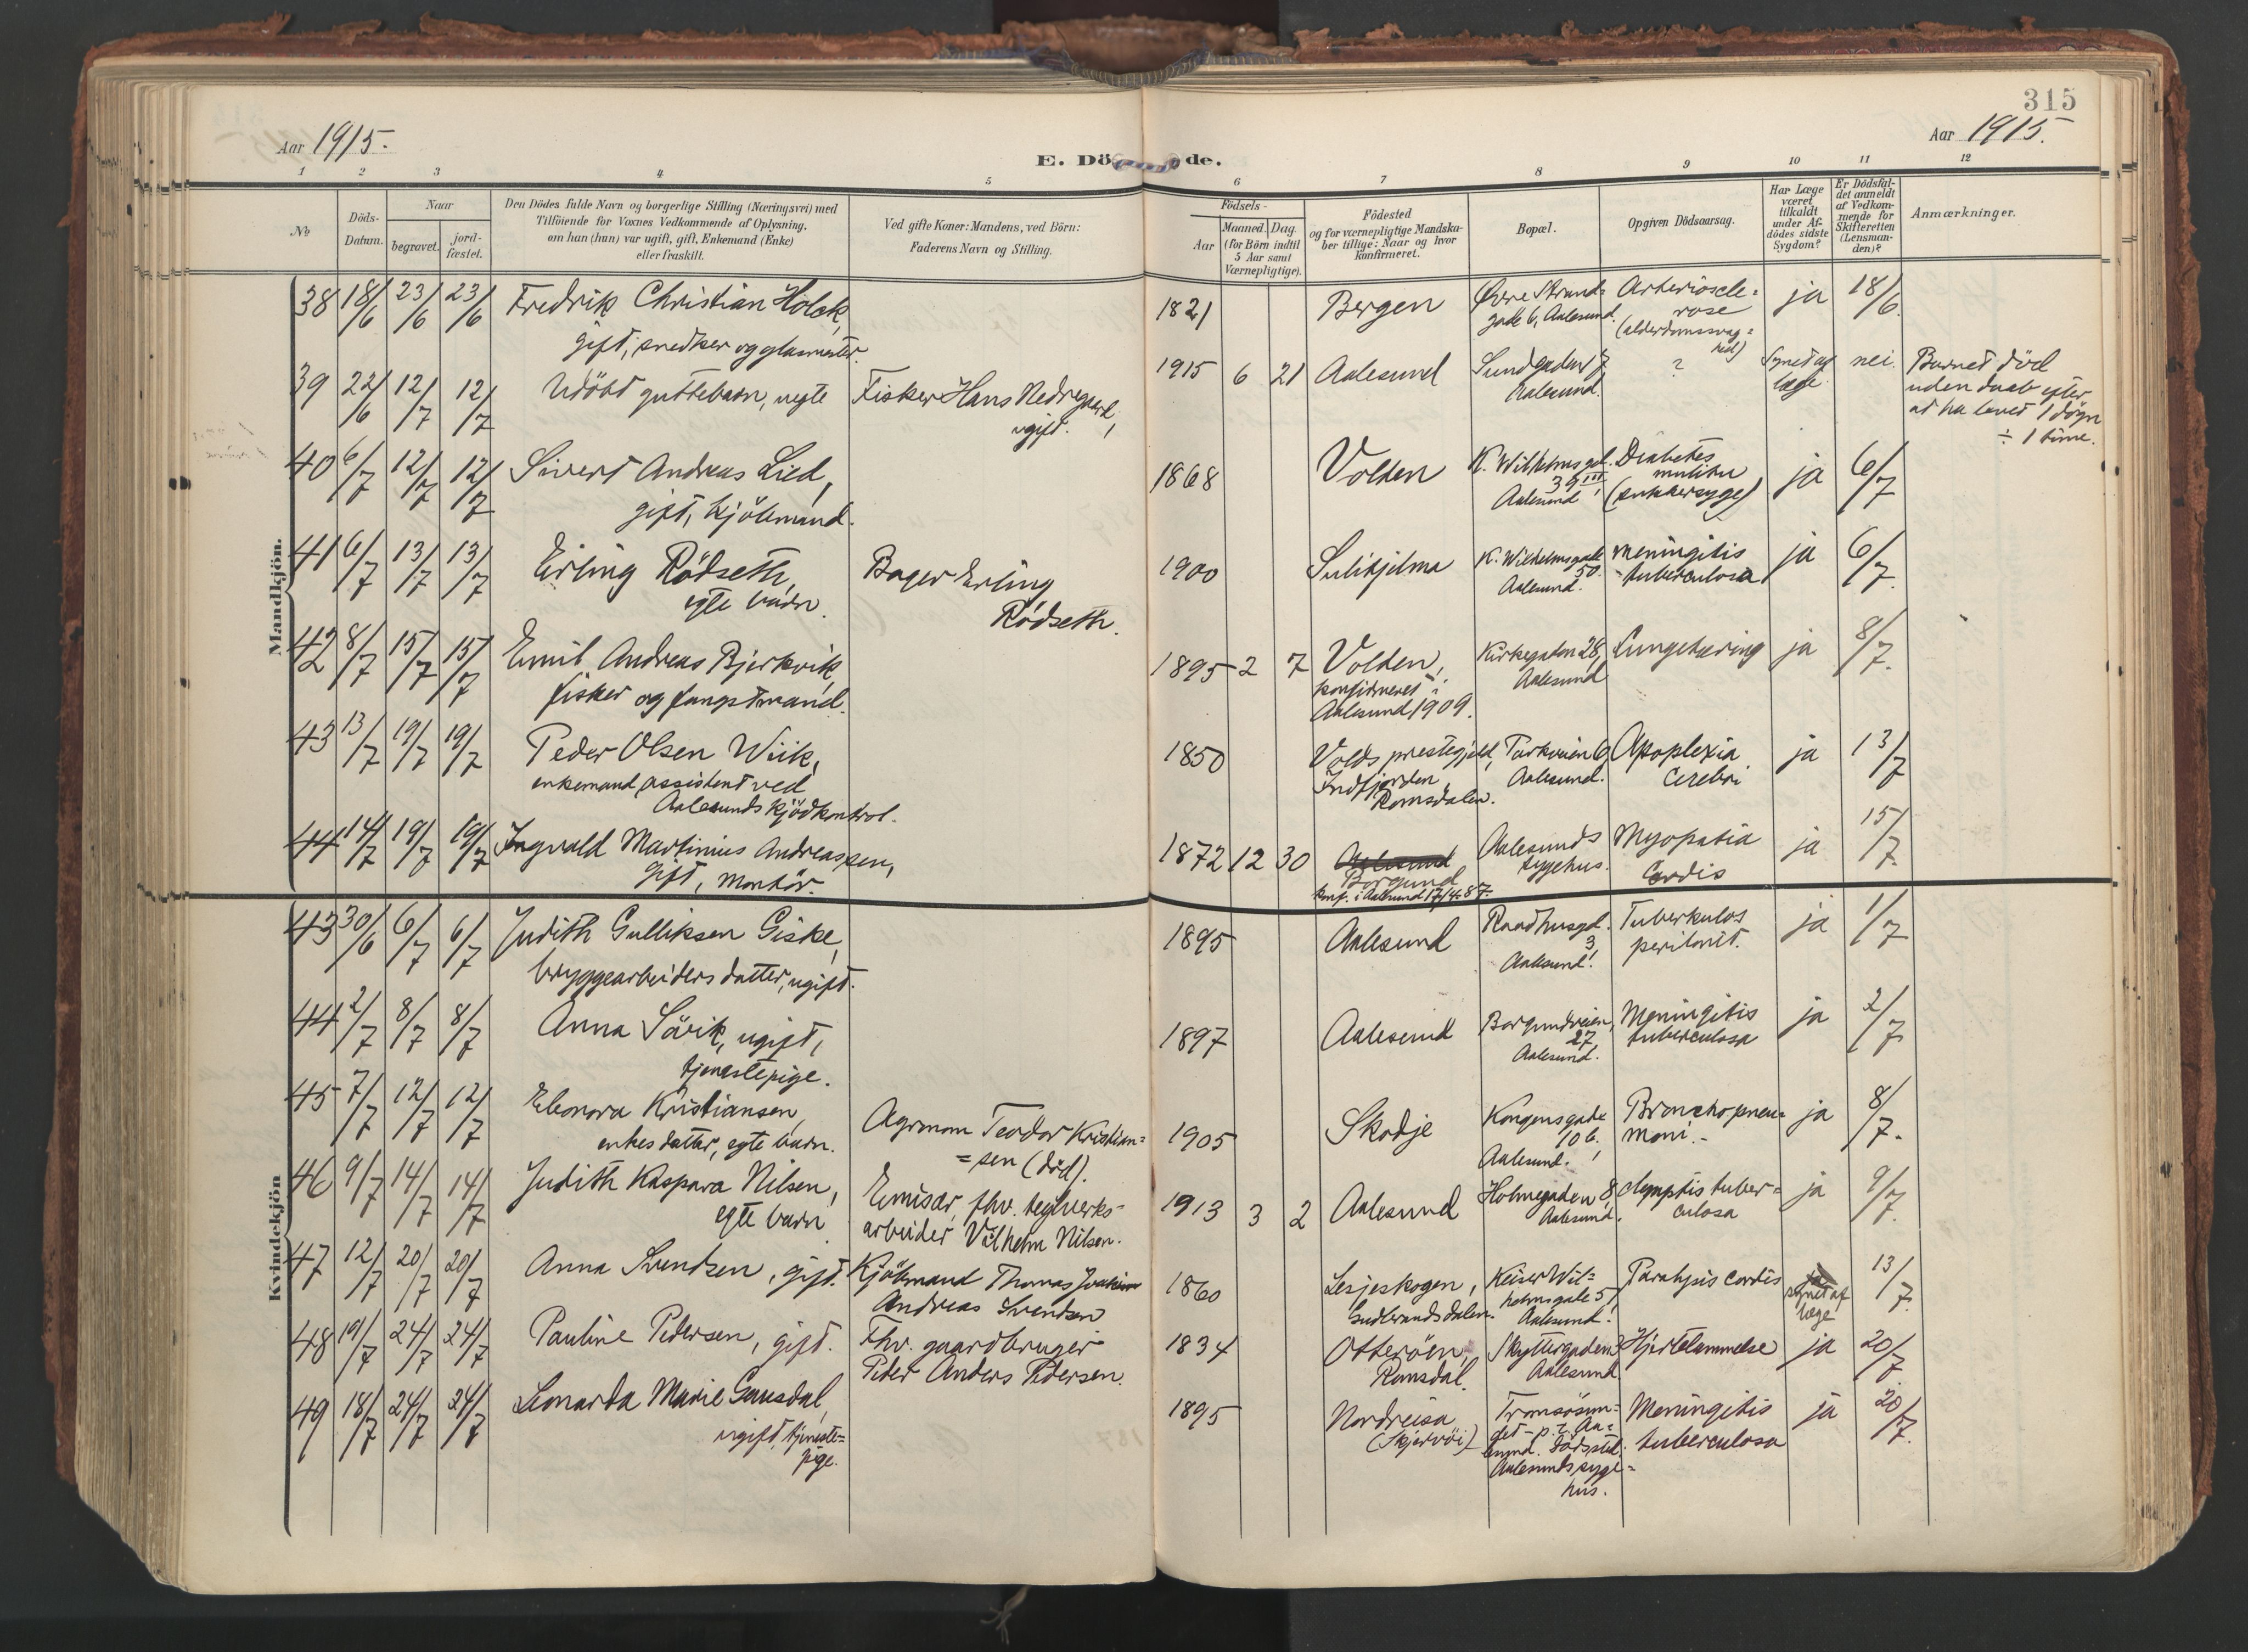 315
Aar 1915.
E. Dö de.
Aar 1915.
1 2 3 4 5 6 7 8 9 10 11 12
No
Döds-
Datum.
Naar
begravet.
jord-
fæstet.
Den Dödes fulde Navn og borgerlige Stilling (Næringsvei) med
Tilföiende for Voxnes Vedkommende af Oplysning,
om han (hun) var ugift, gift, Enkemand (Enke)
eller fraskilt.
Ved gifte Koner: Mandens, ved Börn:
Faderens Navn og Stilling.
Födsels-
Aar
Maaned. Dag.
(for Börn indtil
5 Aar samt
Værnepligtige).
Födested
og for værnepligtige Mandska-
ber tillige: Naar og hvor
konfirmeret.
Bopæl.
Opgiven Dödsaarsag.
Har Læge
været
tilkaldt
under Af-
dödes sidste
Sygdom?
Er Dödsfal-
det anmeldt
af Vedkom-
mende for
Skifteretten
(Lensman-
den)?
Anmærkninger.
Mandkjön.
38 18/6 23/6 23/6 Fredrik Christian Holck,
gift, snedker og glasmester.
1821 Bergen
Øvre Strand-
gade 6, Aalesund.
Arterioscle-
rose
(alderdomssvag-
hed)
ja 18/6.
39 22/6 12/7 12/7 Udöbt guttebarn, uegte
Fisker Hans Nedregaard,
ugift.
1915 6 21 Aalesund
Sundgaden 7,
Aalesund.
?
Synet af
læge
nei.
Barnet död
uden daab efter
at ha levet 1 dögn
÷ 1 time.
40 6/7 12/7 12/7 Sivert Andreas Lied,
gift, kjöbmand.
1868 Volden
K. Wilhelmsgd.
39 III,
Aalesund
Diabetes
(sukkersyge)
ja 6/7
41 6/7 13/7 13/7 Erling Rödseth,
egte barn.
Bager Erling
Rödseth.
1900
K. Wilhelmsgade
50.
Aalesund.
Meningitis
tuberculosa
ja 6/7.
42 8/7 15/7 15/7 Emil Andreas Bjerkvik,
fisker og fangstmand.
1895 2 7 Volden,
konfirmeret i
Aalesund 1909.
Kirkegaten 28,
Aalesund
Lungetæring
ja 8/7.
43 13/7 19/7 19/7 Peder Olsen Wiik,
enkemand, assistent ved
Aalesunds kjödkontrol.
1850 Volds prestegjeld,
Indfjorden
Romsdalen.
Parkveien 6,
Aalesund.
Apoplexia
Cerebri
ja 13/7
44 14/7 19/7 19/7 Ingvald Martinius Andreassen,
gift, montör.
1872 12 30 Aalesund
Borgund
konf. i Aalesund 17/4-87.
Aalesunds
sygehus.
Myopatia
Cordis
ja 15/7.
Kvindekjön
43 30/6 6/7 6/7 Judith Gulliksen Giske,
bryggearbeiders datter, ugift.
1895 Aalesund
Raadhusgd.
3,
Aalesund.
Tuberkulos
peritonit.
ja 1/7
44 2/7 8/7 8/7 Anna Sörik, ugift,
tjenestepige.
1897 Aalesund
Borgundveien,
27,
Aalesund.
Meningitis
tuberculosa
ja 2/7
45 7/7 12/7 12/7 Eleonora Kristiansen,
enkes datter, egte barn.
Agronom Teodor Kristian-
=sen (död).
1905 Skodje
Kongensgade
10 b,
Aalesund.
Bronchopneu-
moni.-
ja 8/7.
46 9/7 14/7 14/7 Judith Kaspara Nilsen,
egte barn.
Emisær, fhv. teglverks-
arbeider Vilhelm Nilsen.
1913 3 2 Aalesund
Holmegaden 8,
Aalesund.
tuber-
culosa
ja 9/7.
47 12/7 20/7 20/7 Anna Svendsen, gift.
Kjöbmand Thomas Joakim
Andreas Svendsen
1860 Lesjeskogen,
Gudbrandsdalen.
Keiser Wil-
helmsgate 5,
Aalesund.
Paralysis Cordis
ja
synet af
læge
13/7.
48 19/7 24/7 24/7 Pauline Pedersen, gift.
Fhv. gaardbruger
Peder Anders Pedersen.
1834 Otteröen,
Romsdal.
Skyttergaden 3
Aalesund.
Hjertelammelse
ja 20/7.
49 18/7 24/7 24/7 Leonarda Marie Gausdal,
ugift, tjeneste-
pige.
1895 Nordreisa
(Skjervöi)
Tromsösun-
det - p. t. Aa-
lesund. Dödssted:
Aalesunds syge-
hus.
Meningitis
tuberculosa
ja 20/7.